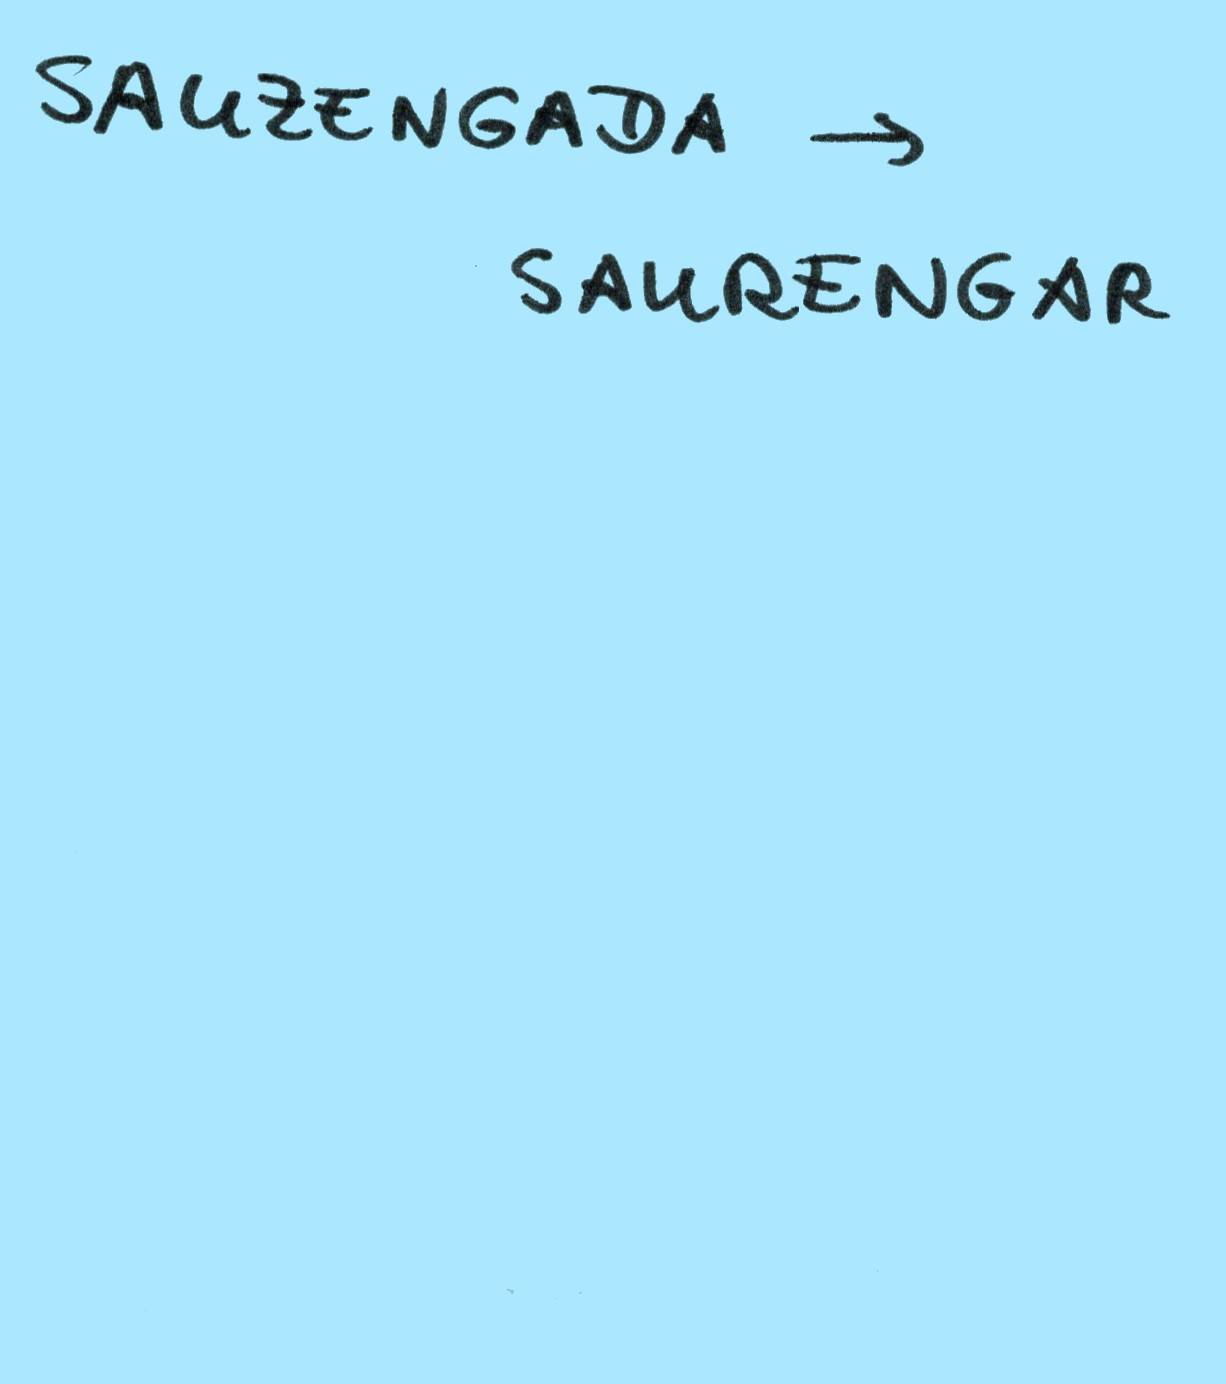 SAUZENGADA →
SAURENGAR